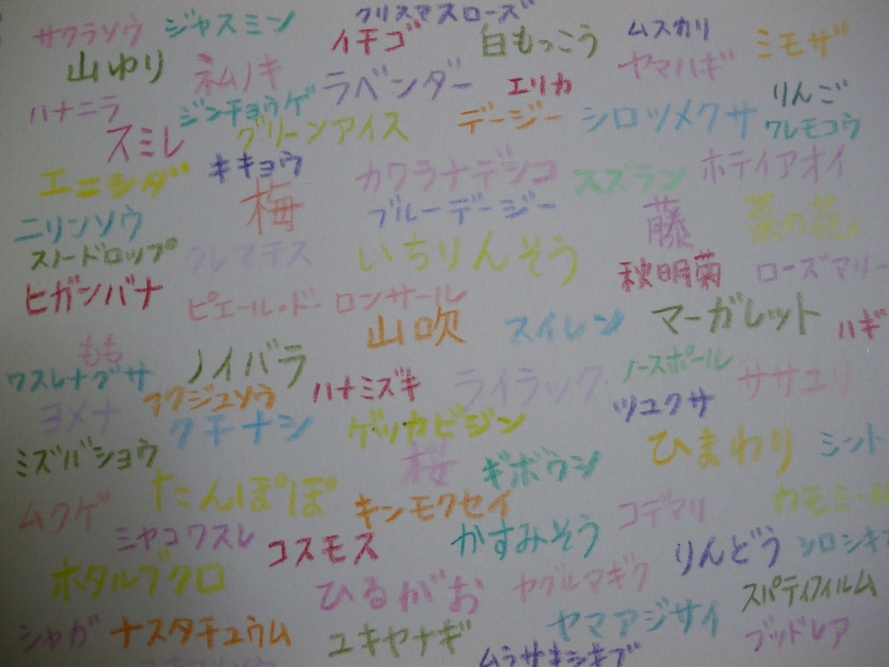 クリスマスローズ
サクラソウ ジャスミン イチゴ 白もっこう ムスカリ ミモザ
山ゆり ネムノキ ラベンダー エリカ ヤマハギ りんご
ハナニラ ジンチョウゲ グリーンアイス デージー シロツメクサ ワレモコウ
スミレ キキョウ
エニシダ 梅 カワラナデシコ スズラン ホテイアオイ
ニリンソウ ブルーデージー 藤 菜の花
スノードロップ クレマチス いちりんそう 秋明菊 ローズマリー
ヒガンバナ ピエール・ド・ロンサール
山吹 スイレン マーガレット ハギ
もも ノイバラ ノースポール
ワスレナグサ フクジュソウ ハナミズキ ライラック ササユリ
ヨメナ クチナシ ゲッカビジン ツユクサ
ミズバショウ 桜 ギボウシ ひまわり シント
たんぽぽ キンモクセイ カモミール
ムクゲ ミヤコワスレ コスモス かすみそう コデマリ りんどう シロシキブ
ホタルブクロ ひるがお ヤグルマギク スパティフィルム
シャガ ナスタチュウム ユキヤナギ ヤマアジサイ ブッドレア
ムラサキシキブ